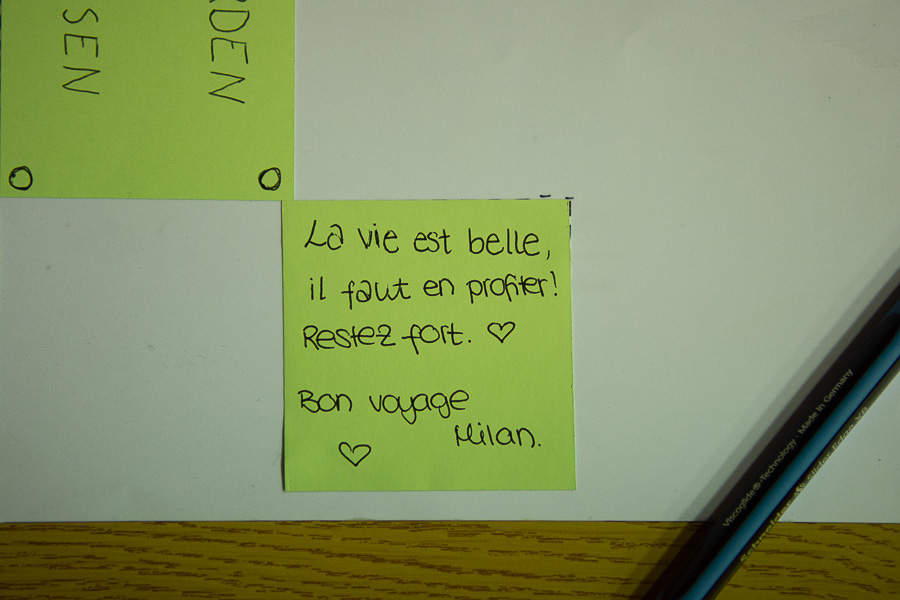 RDEN
SEN
La vie est belle,
il faut en profiter!
Restez fort. ♡
Bon voyage
Milan.
♡
Viscoglide®-Technology · Made in Germany
Schneider Slider Edge XB